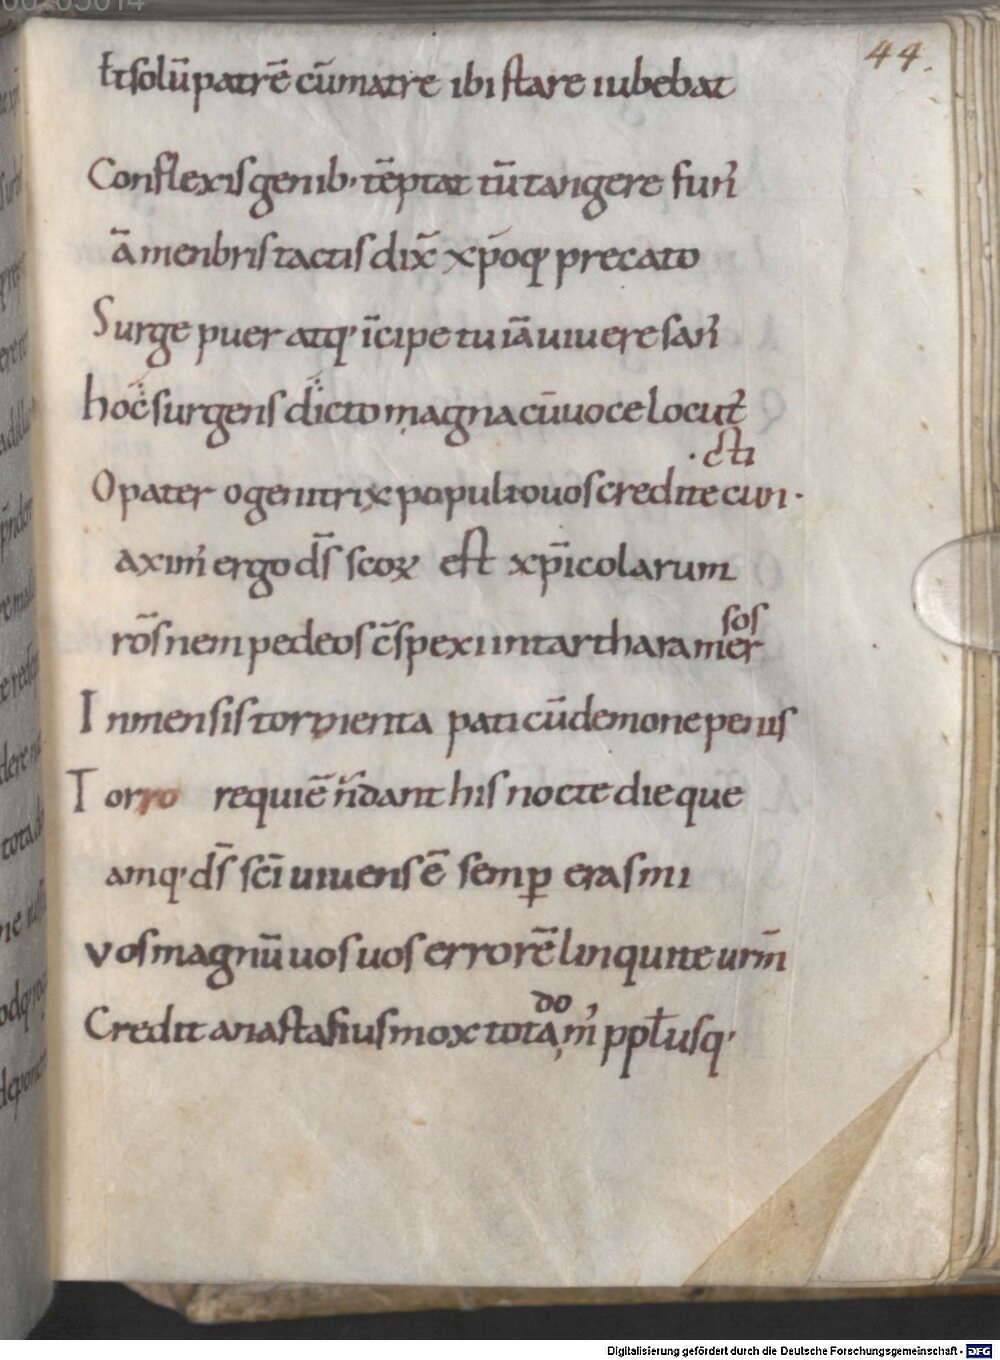 44.
t̄tsolūpatrē cūmatre ibi stare iubebat
Conflexisgenib· tēptat tūtangere fun̄
āmenbristactisdix̄ xp̄oq; precato
Surge puer atq; īcipe tu iā uiuere san̄
hoc̄surgens dicto magnacūuoce locut̄
· cti
Opater ogenitrix populiouoscreditecun·
axim̄ ergo ds̄ scoꝝ est xp̄icolarum
sos
rōsnempedeos c̄spexi intartharamer
Inmensistormenta paticūdemone penis
Torro requiē n̄dant his nocte dieque
amq; ds̄ sc̄i uiuens ē semꝑ erasmi
vosmagnūuosuos errorē linquite urm̄
do
Credit anastasiusmox totam̄ pplusq;